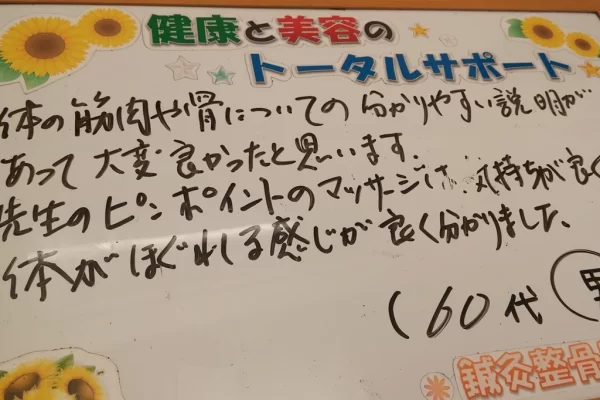 健康と美容の
トータルサポート
体の筋肉や骨についての分かりやすい説明が
あって大変良かったと思います。
先生のピンポイントのマッサージは、気持ちが良く
体がほぐれる感じが良く分かりました。
(60代 男
鍼灸整骨